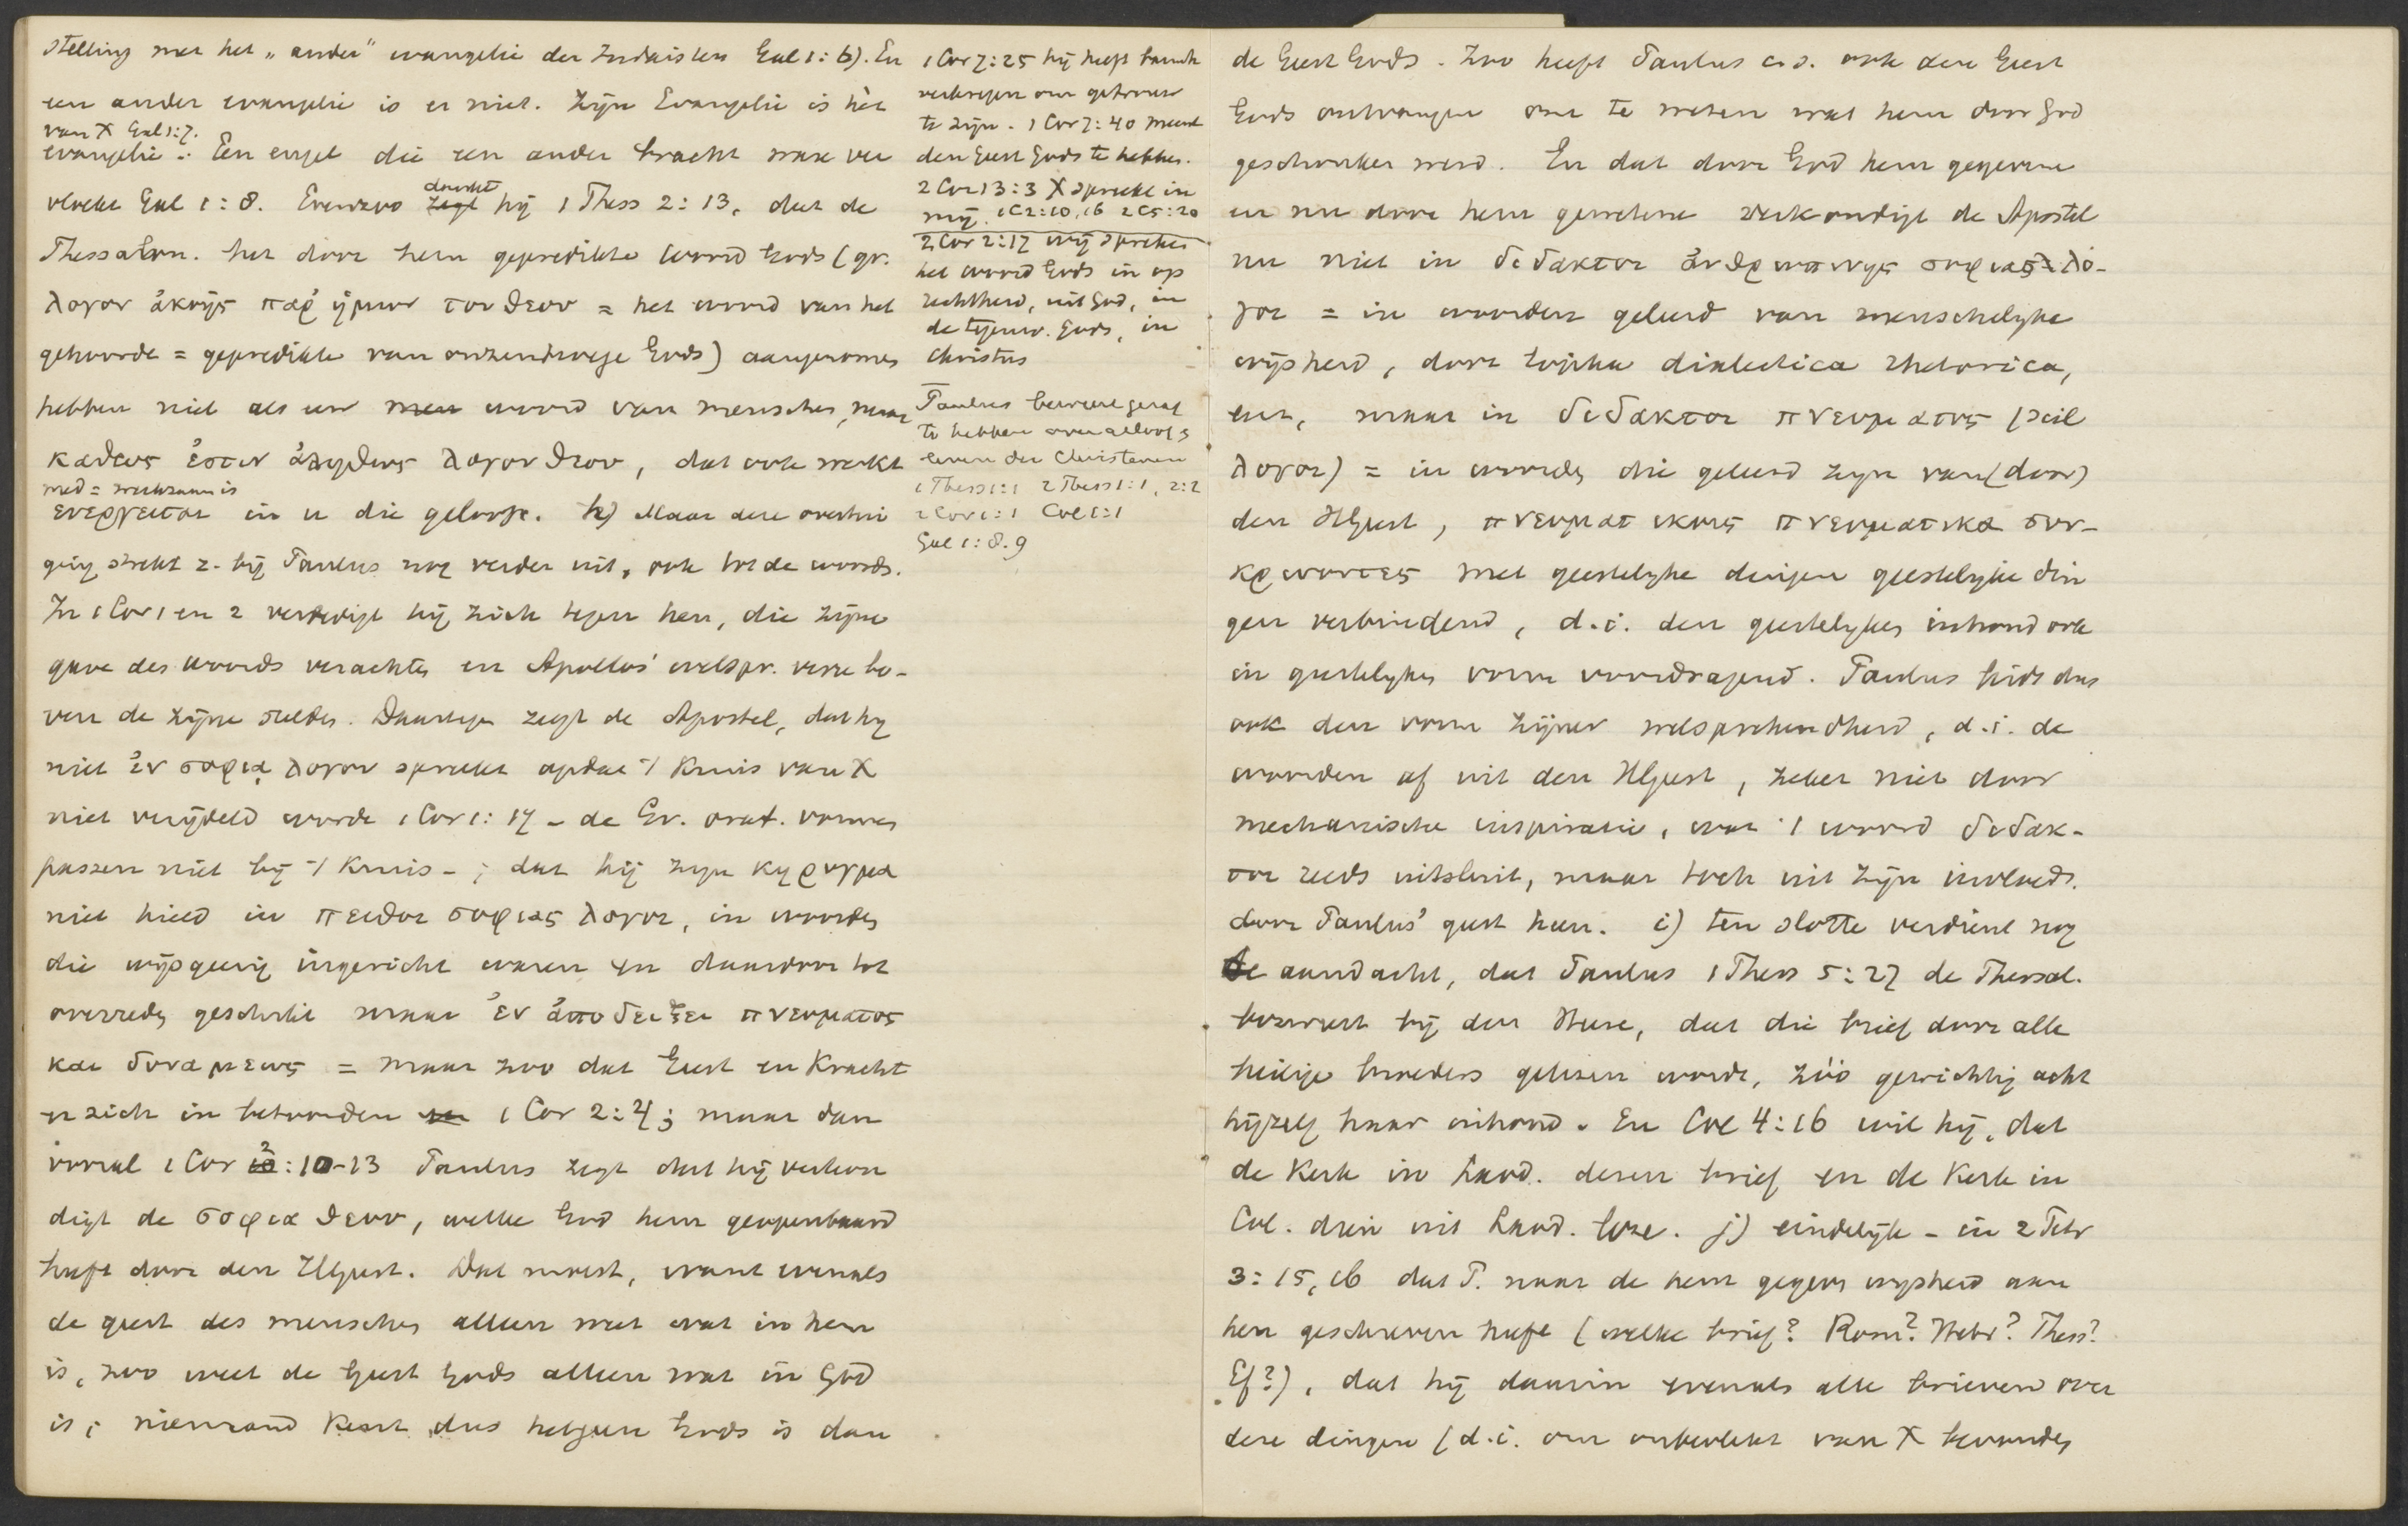 stelling met het „ander" evangelie der Judaisten Gal 1:6). En
een ander evangelie is er niet. Zijn Evangelie is hèt
van X Gal 1:7.
evangelie. Een engel die een ander bracht ware ver
vloekt Gal 1:8. Evenzoo dankt hij 1 Thess 2:13, dat de
Thessalon. het door hem gepredikte woord Gods (gr.
λογον ἀκοῆς παρ ἡμων του θεου = het woord van het
gehoorde = gepredikte van onzentwege Gods) aangenomen
hebben niet als een woord van menschen, maar
καθως ἐστιν ἀληθως λογον θεου, dat ook werkt
med = werkzaam is
ενεργειται in u die gelooft. h) Maar deze overtui
ging strekt z. bij Paulus nog verder uit, ook tot de woord.
In 1 Cor 1 en 2 verdedigt hij zich tegen hen, die zijne
gave des woords verachtten en Apollos' welspr. verre bo-
ven de zijne stelden. Daartegen zegt de Apostel, dat hij
niet ἐν σοφιᾳ λογου spreekt opdat 't Kruis van X
niet verijdeld worde 1 Cor 1:17 - de Gr. orat. vormen
passen niet bij 't Kruis -; dat hij zijn κηρυγμα
niet hield in πειθοι σοφιας λογοι, in woorden
die wijsgeerig ingericht waren en daardoor tot
overreden geschikt maar ἐν ἀποδειξει πνευματος
και δυναμεως = maar zoo dat Geest en Kracht
er zich in betoonden 1 Cor 2:4; maar dan
vooral 1 Cor 2:10-13 Paulus zegt dat hij verkon
digt de σοφια θεου, welke God hem geopenbaard
heeft door den HGeest. Dat moest, want evenals
de geest des menschen alleen weet wat in hem
is, zoo weet de Geest Gods alleen wat in God
is; niemand kent dus hetgeen Gods is dan
1 Cor 7:25 hij heeft barmh
verkregen om getrouw
te zijn. 1 Cor 7:40 meent
den Geest Gods te hebben.
2 Cor 13:3 X spreekt in
mij. 1C2:10,16 2C5:20
2 Cor 2:17 wij spreken
het woord Gods in op
rechtheid, uit God, in
de tegenw. Gods, in
Christus
Paulus beweert gezag
te hebben over geloof &
leven der Christenen
1 Thess 1:1 2 Thess 1:1, 2:2
2 Cor 1:1 Col 1:1
Gal 1:8.9
de Geest Gods. Zoo heeft Paulus c.s. ook dien Geest
Gods ontvangen om te weten wat hem door God
geschonken werd. En dat door God hem gegevene
en nu door hem gewetene verkondigt de Apostel
nu niet in διδακτοι ἀνθρωπινης σοφιας λο-
γοι = in woorden geleerd van menschelijke
wijsheid, door logica dialectica rhetorica,
enz, maar in διδακτοι πνευματος (scil
λογοι) = in woorden die geleerd zijn van (door)
den HGeest, πνευματικοις πνευματικα συν-
κρινοντες met geestelijke dingen geestelijke din
gen verbindend, d.i. den geestelijken inhoud ook
in geestelijken vorm voordragend. Paulus leidt dus
ook den vorm zijner welsprekendheid, d.i. de
woorden af uit den HGeest, zeker niet door
mechanische inspiratie, wat 't woord διδακ-
τοι reeds uitsluit, maar toch uit zijn invloed.
door Paulus' geest heen. i) ten slotte verdient nog
de aandacht, dat Paulus 1 Thess 5:27 de Thessal.
bezweert bij den Heere, dat die brief door alle
heilige broeders gelezen worde, zóó gewichtig acht
hijzelf haar inhoud. En Col 4:16 wil hij, dat
de Kerk in Laod. dezen brief en de Kerk in
Col. dien uit Laod. leze. j) eindelijk - in 2 Petr
3:15,16 dat P. naar de hem gegeven wijsheid aan
hen geschreven heeft (welke brief? Rom? Hebr? Thess?
Ef?), dat hij daarin evenals alle brieven over
deze dingen (d.i. om onbevlekt van X bevonden